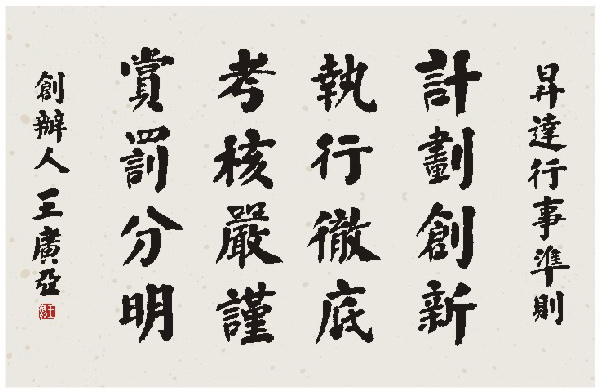 昇達行事準則
計劃創新
執行徹底
考核嚴謹
賞罰分明
創辦人王廣亞